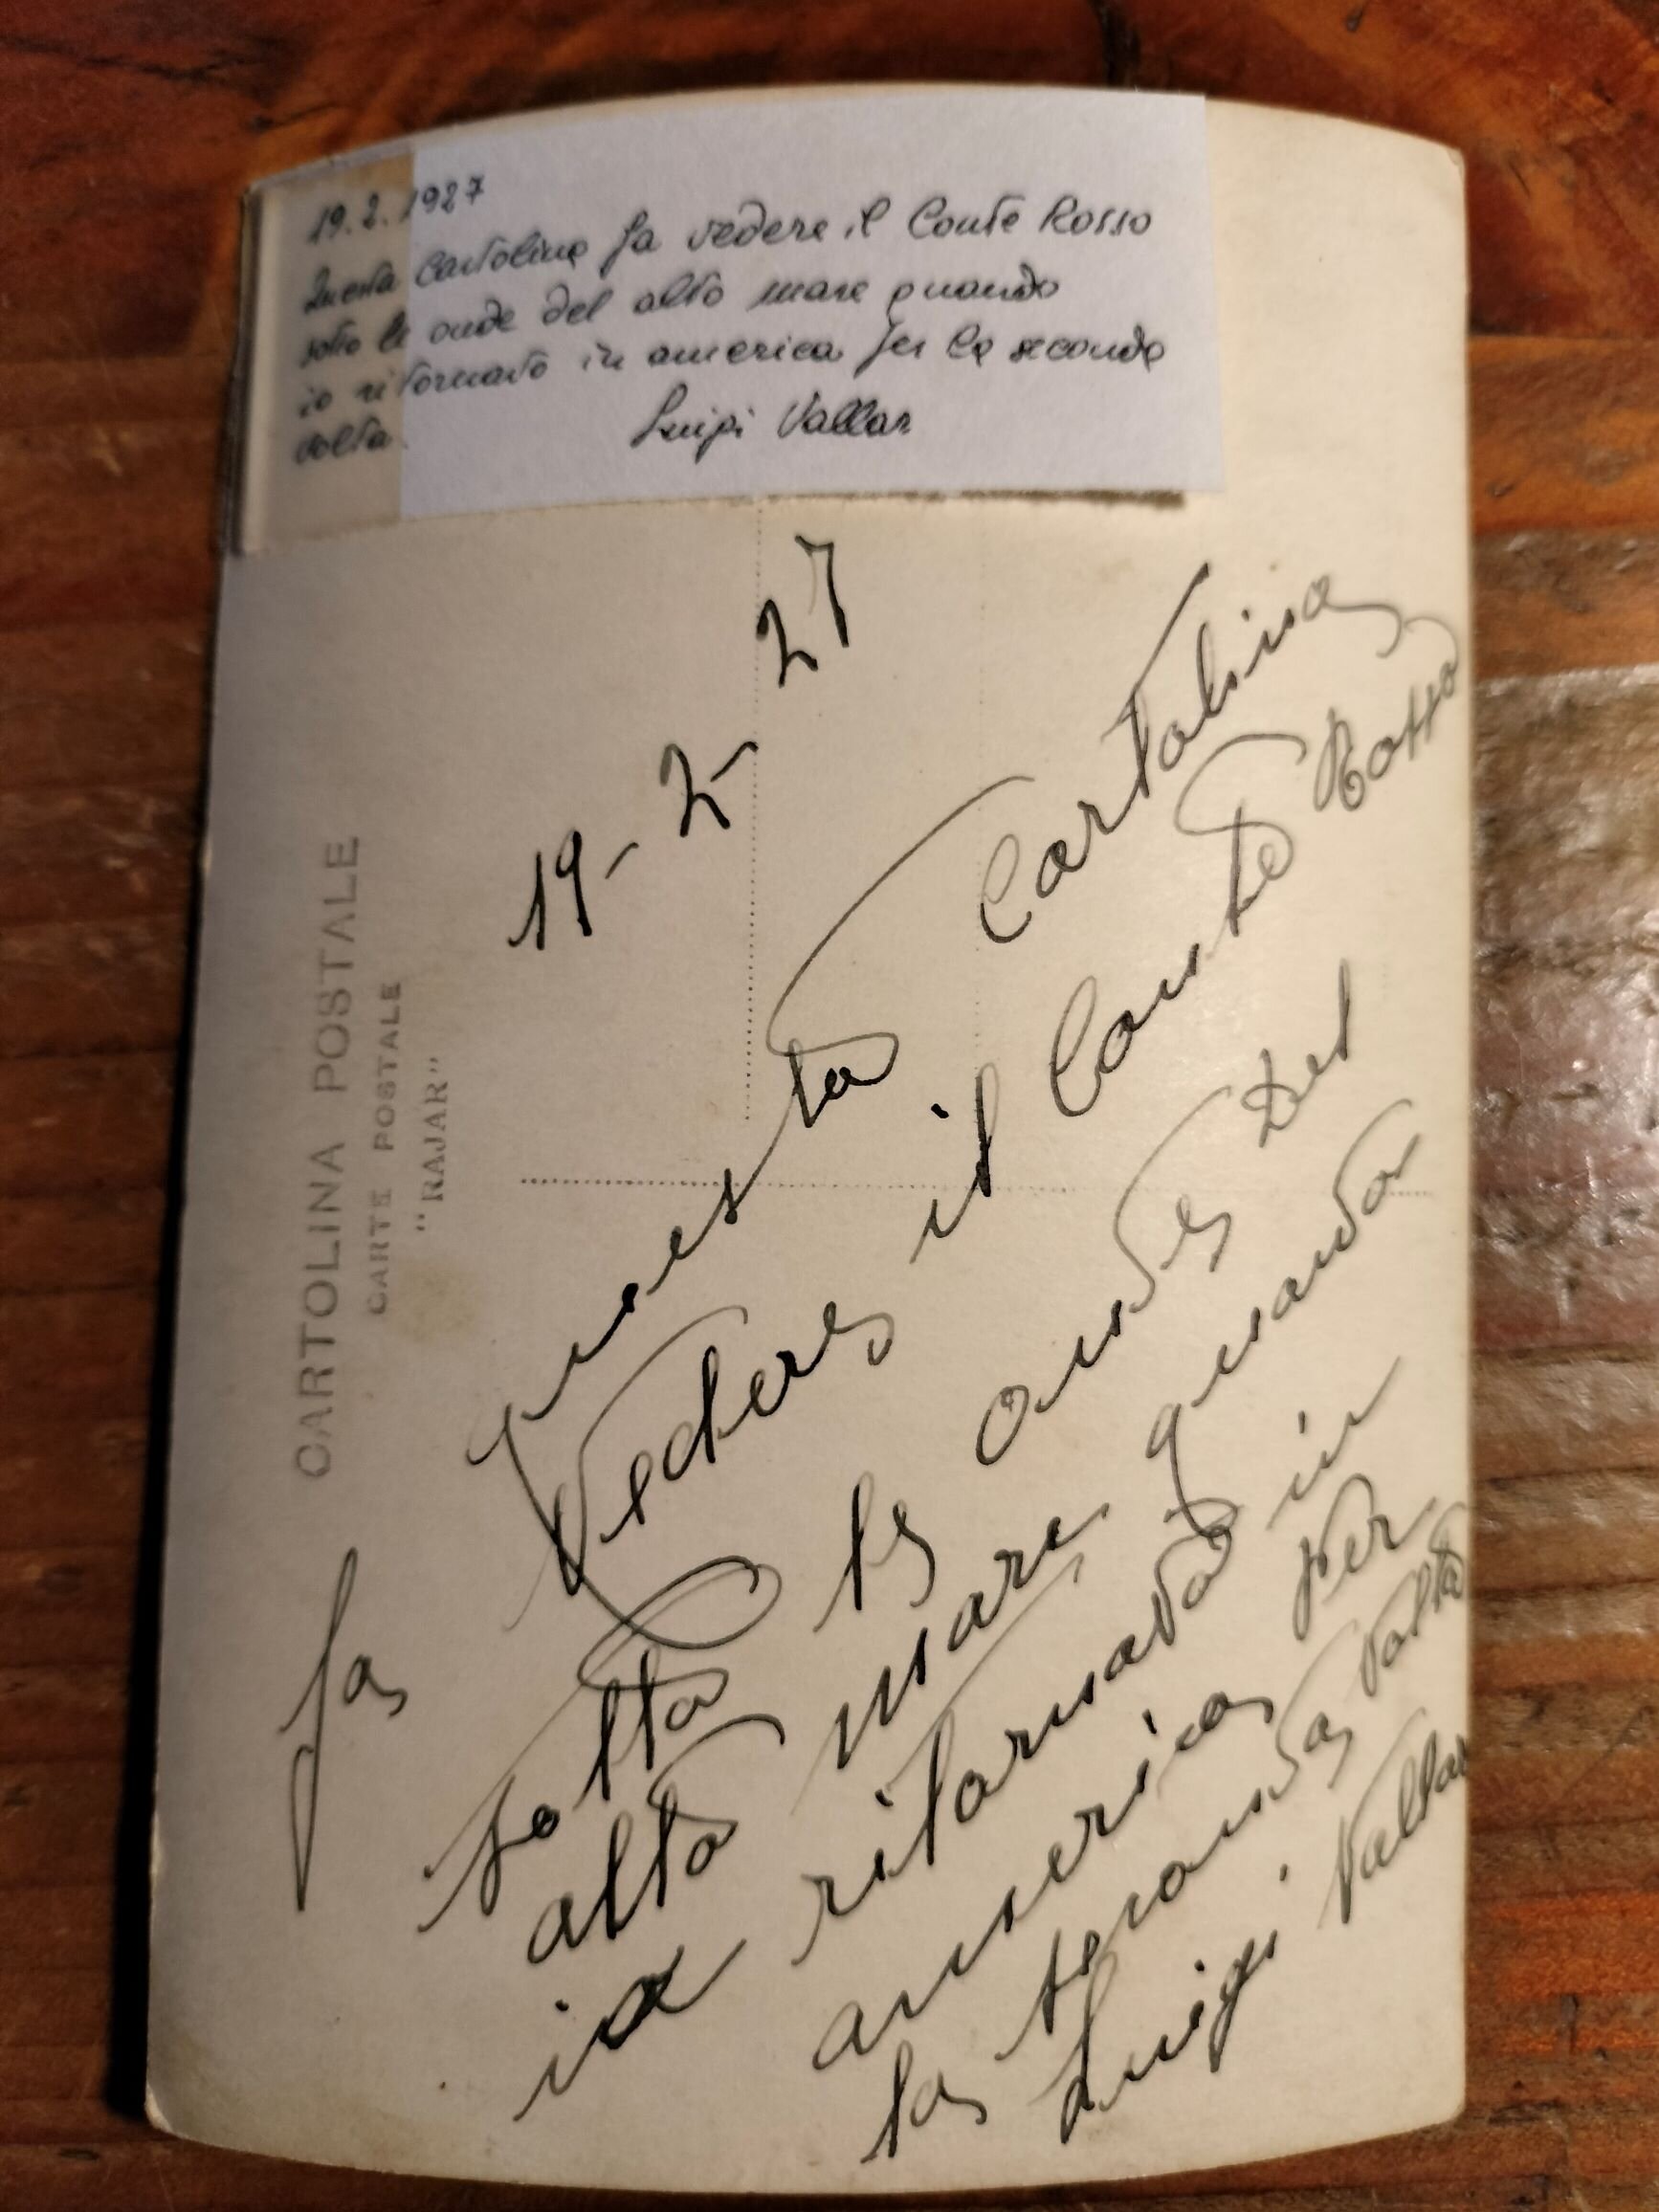 19.2.1927
Questa Cartolina fa vedere il Conte Rosso
sotto le onde del alto mare quando
io ritornato in america per la seconda
volta.
Luigi Vallar
CARTOLINA POSTALE
CARTE POSTALE
"RAJAR"
19-2-27
questa Cartolina
fa Vedere il Conte Rosso
sotto le onde del
alto mare quando
io ritornado in
america per
la seconda volta
Luigi Vallar